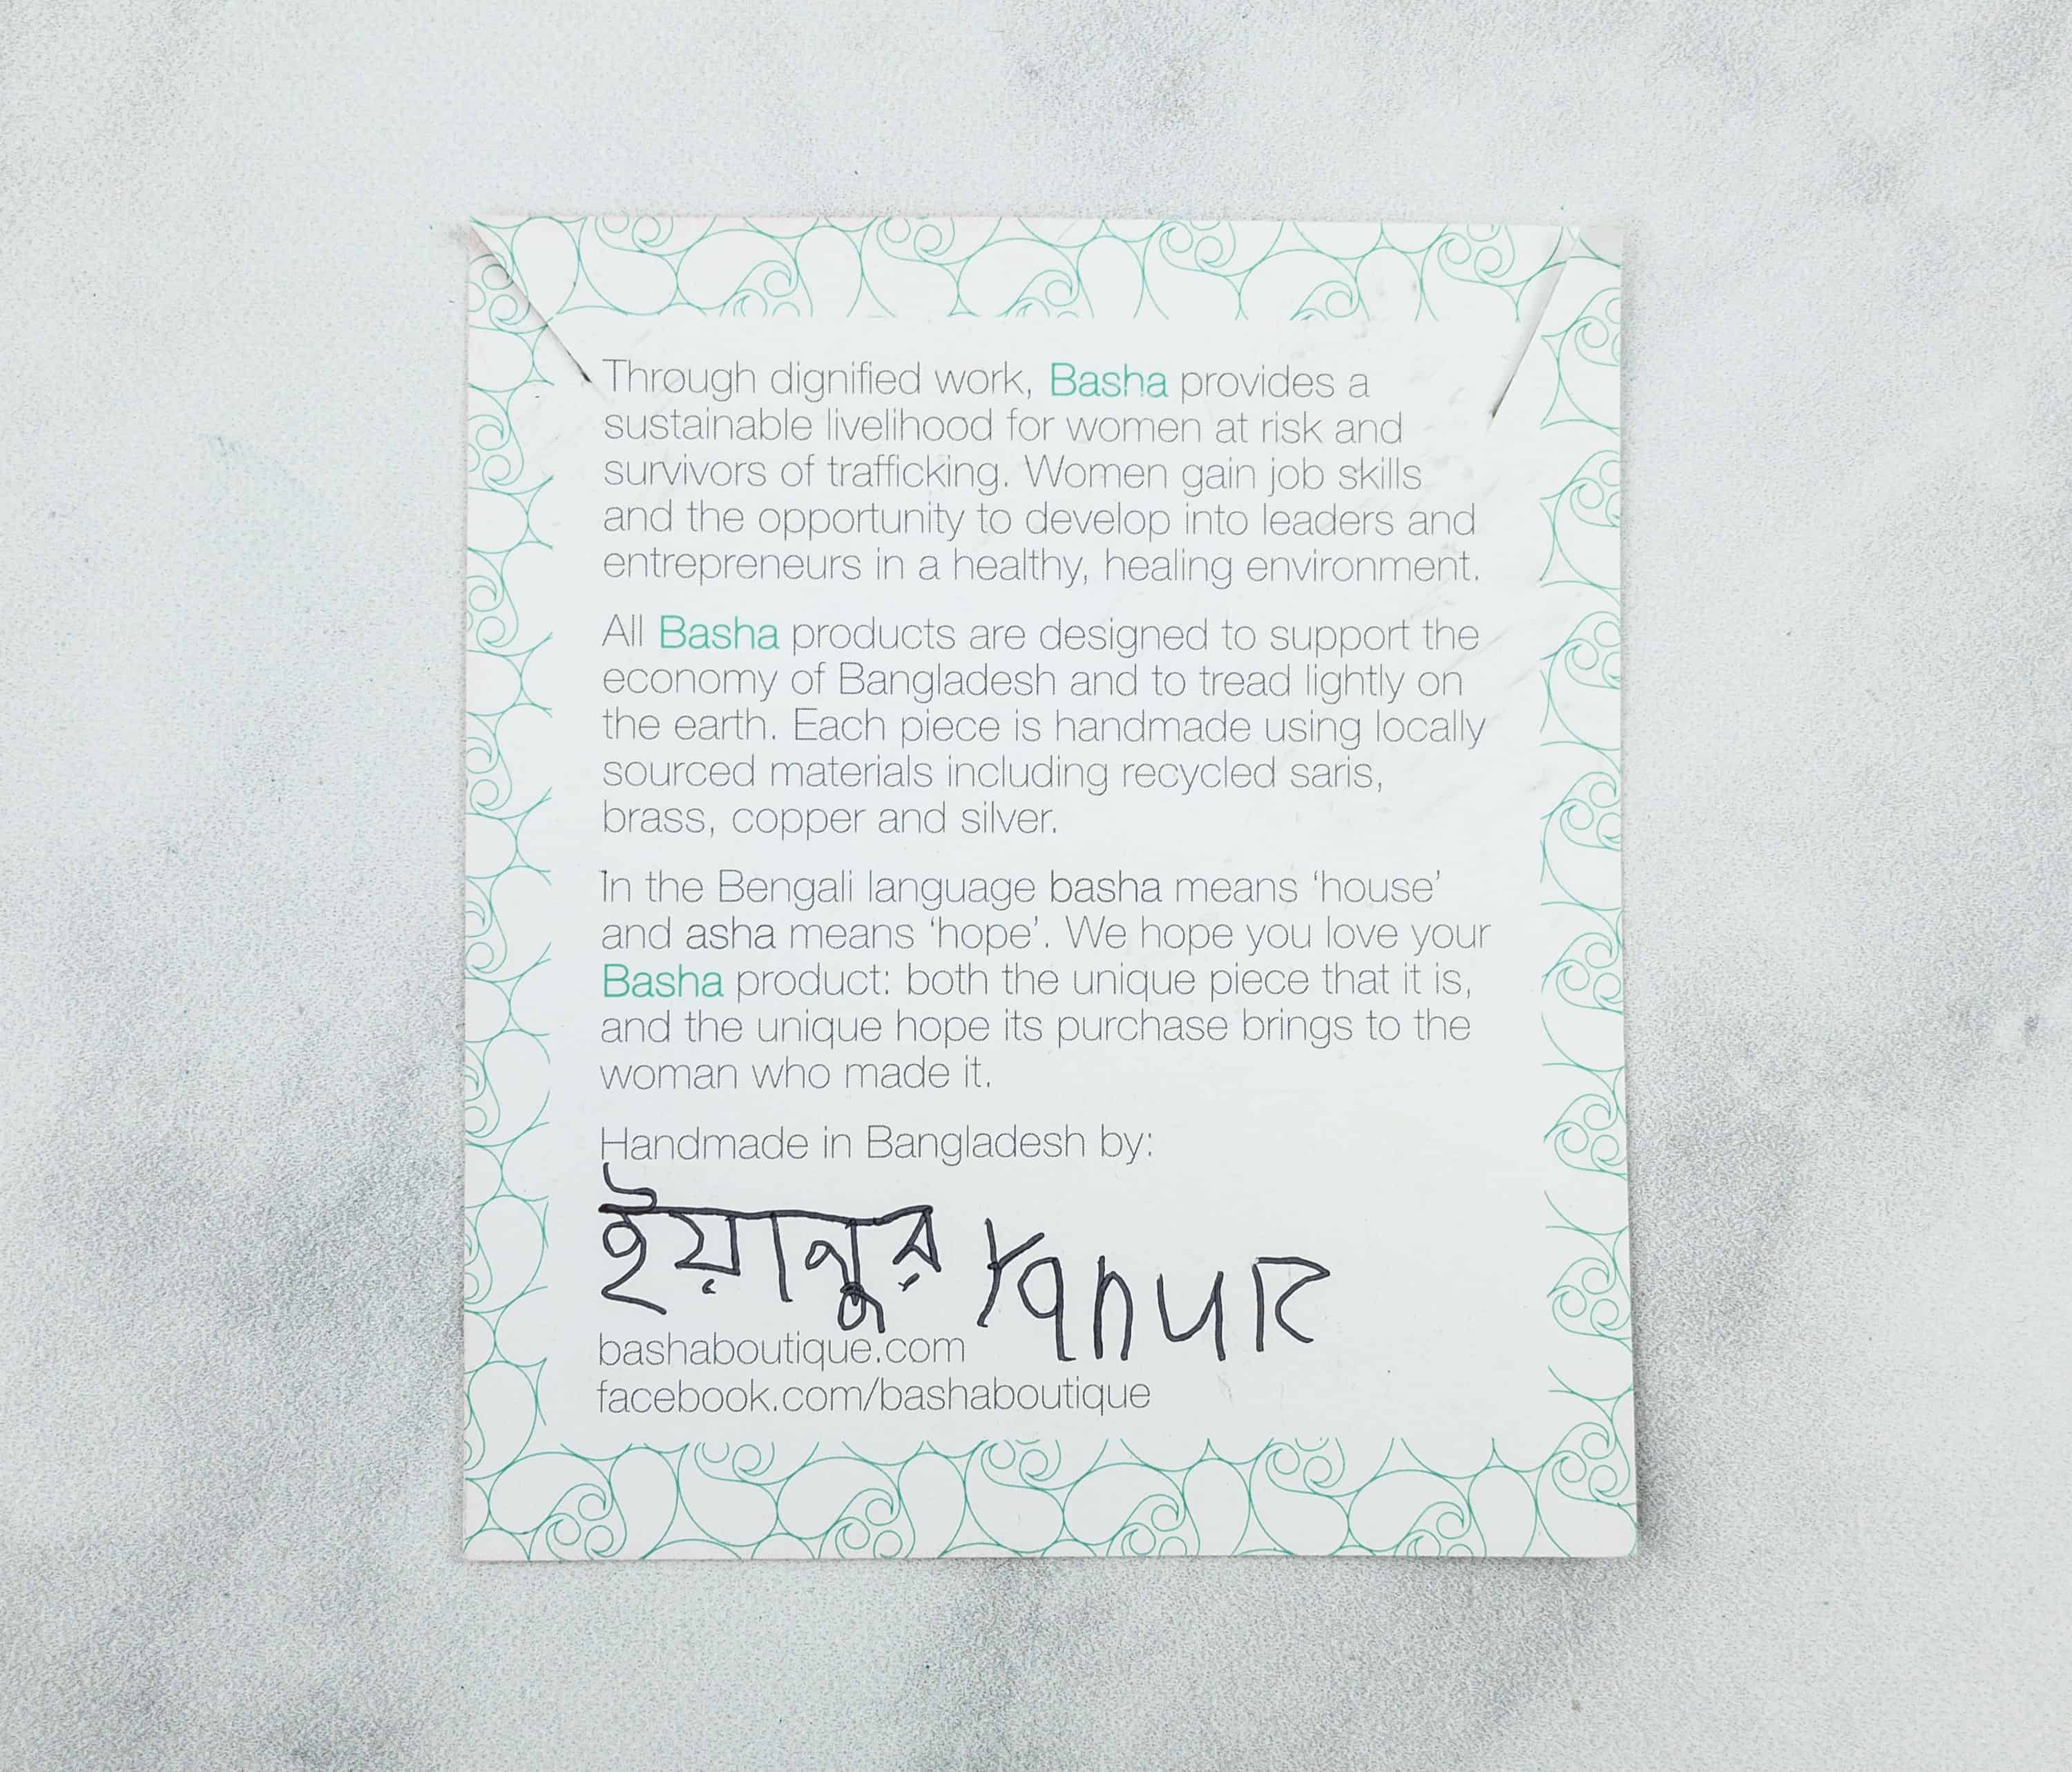 Through dignified work, Basha provides a
sustainable livelihood for women at risk and
survivors of trafficking. Women gain job skills
and the opportunity to develop into leaders and
entrepreneurs in a healthy, healing environment.
All Basha products are designed to support the
economy of Bangladesh and to tread lightly on
the earth. Each piece is handmade using locally
sourced materials including recycled saris,
brass, copper and silver.
In the Bengali language basha means ‘house’
and asha means ‘hope’. We hope you love your
Basha product: both the unique piece that it is,
and the unique hope its purchase brings to the
woman who made it.
Handmade in Bangladesh by:
ইয়ানুর Yanur
bashaboutique.com
facebook.com/bashaboutique